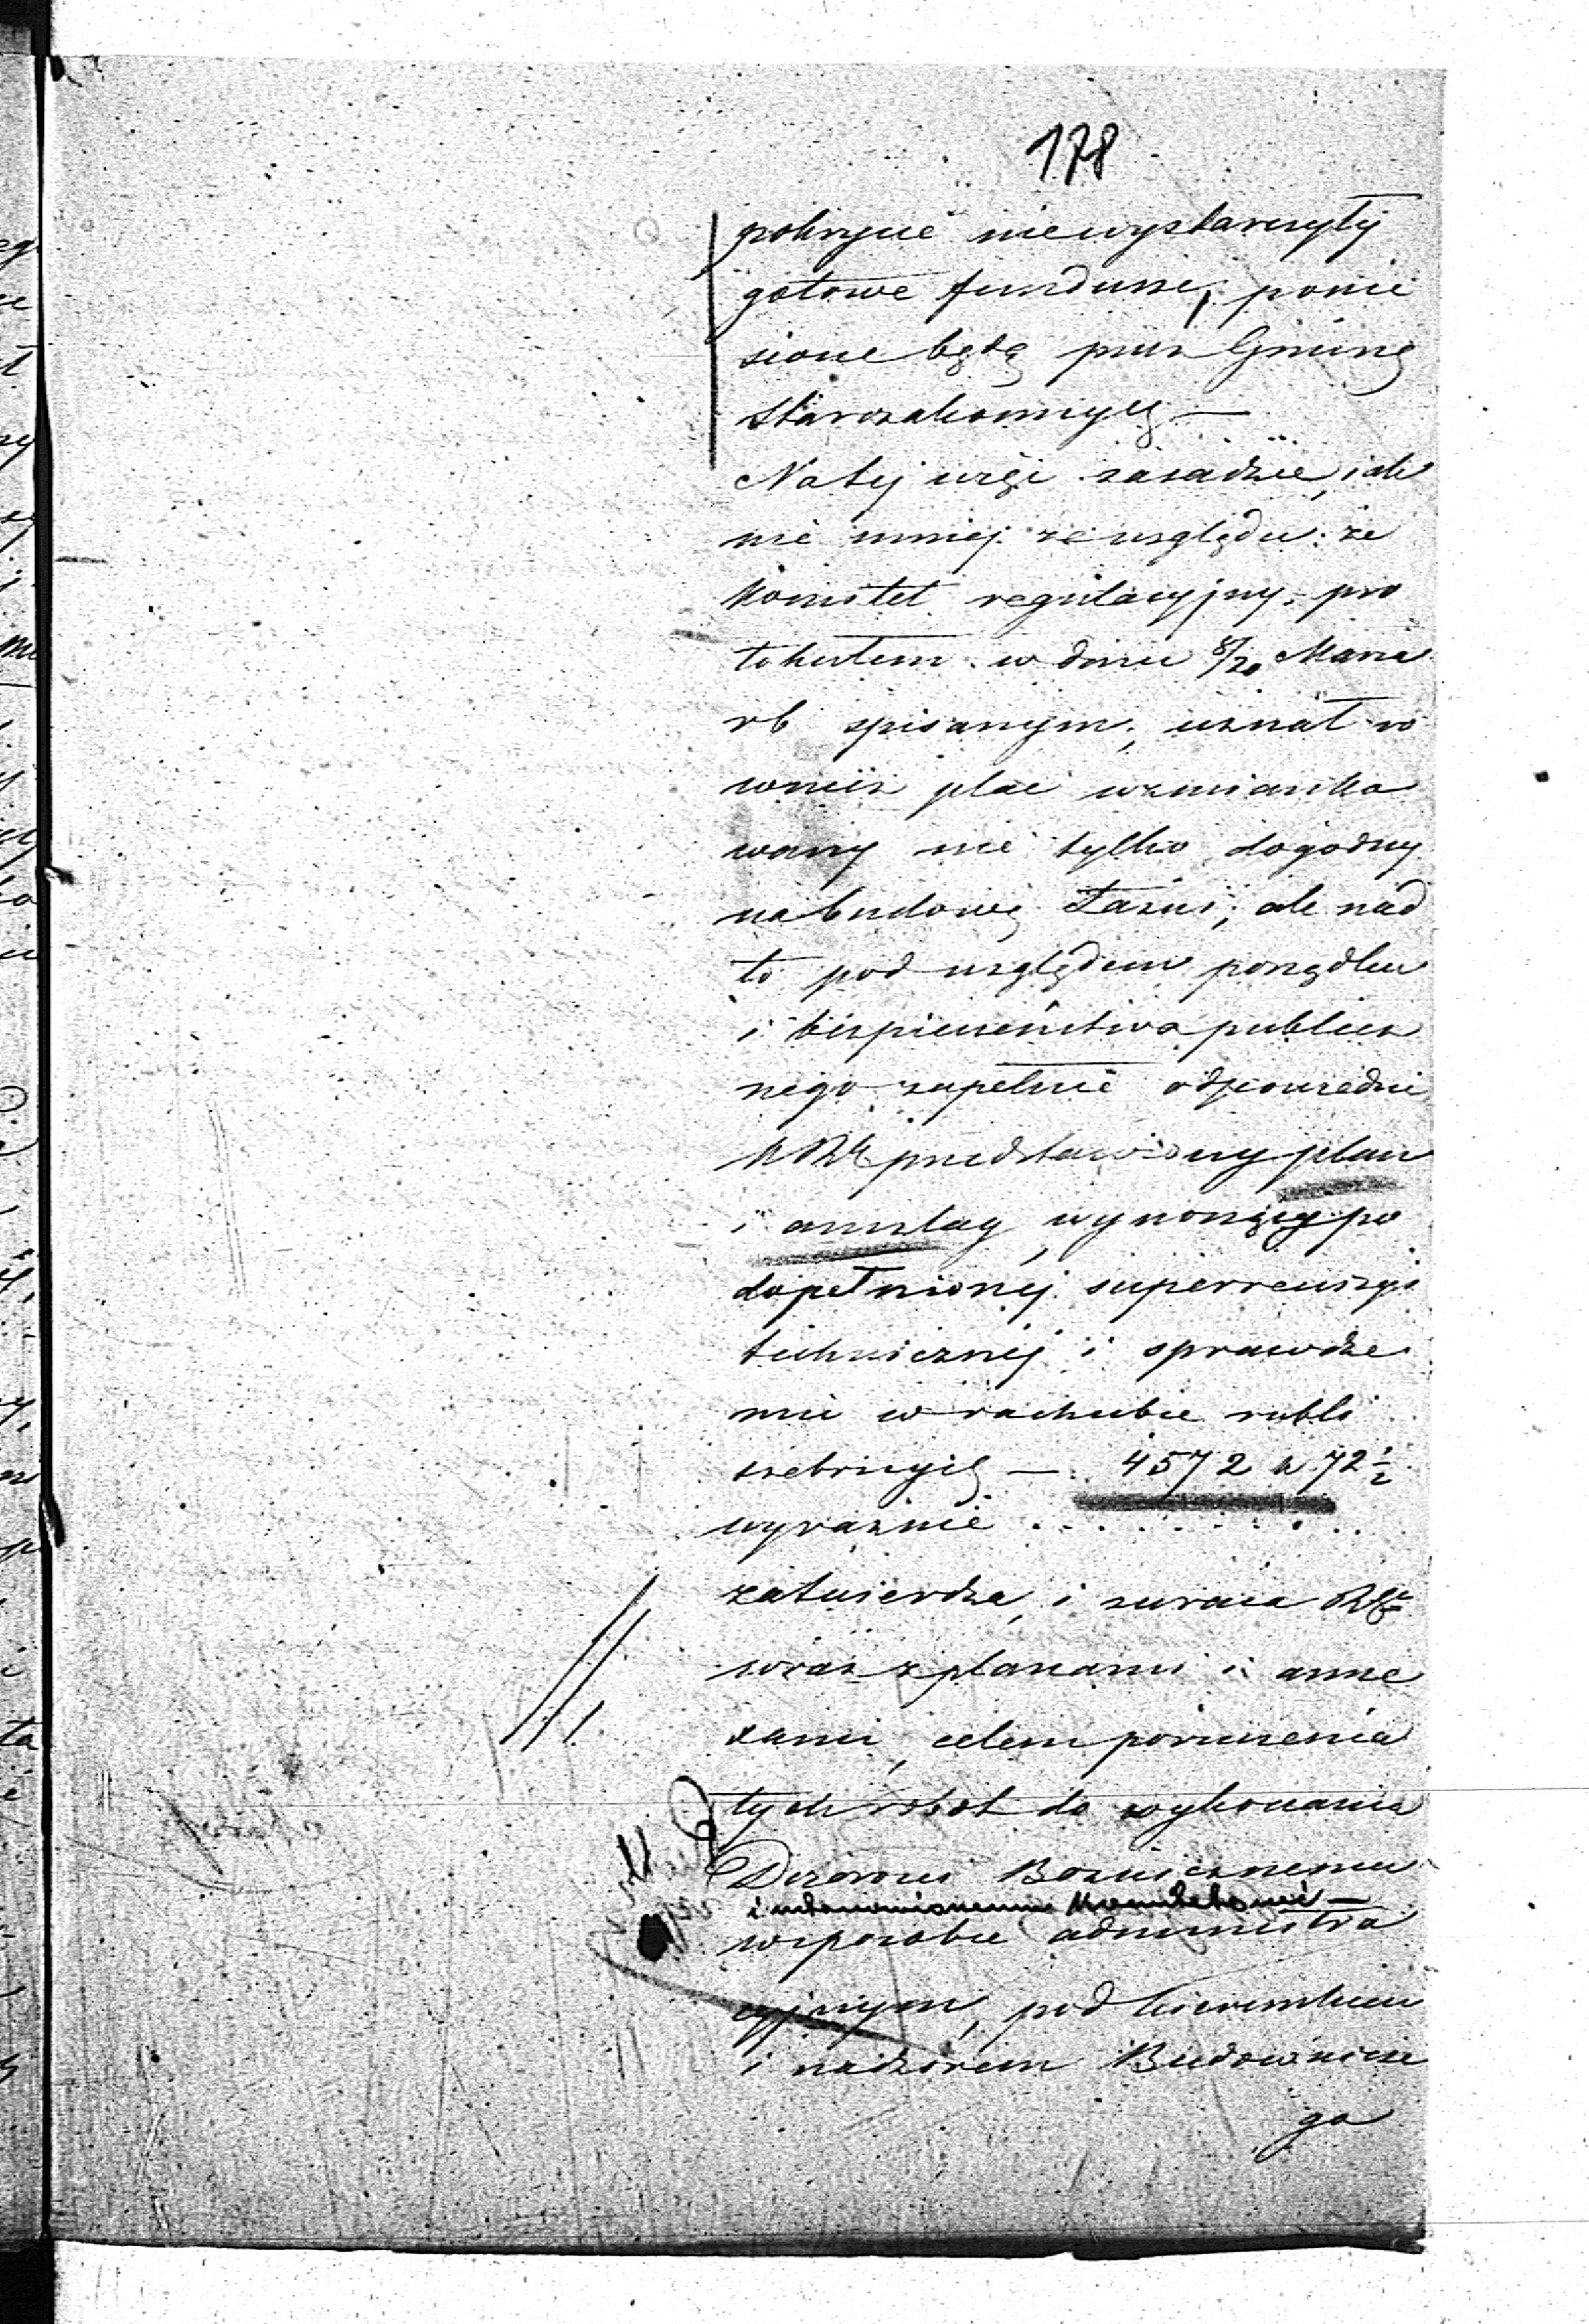 178
pokrycie niewystarczyły
gotowe fundusze, ponie
sione będą przez Gminę
Starozakonnych —
Na tej więc zasadzie, i ale
nie mniej ze względu: że
Komitet regulacyjny, pro
tokułem w dniu 8/20 Marca
rb spisanym, uznał ró
wnież plac wzmianko
wany nie tylko dogodny
na budowę Łaźni, ale nad
to pod względem porządku
i bezpieczeństwa publicz
nego zupełnie odpowiedni
przedstawiony plan
i anszlag wynoszący po
dopełnionej superrewizyi
technicznej i sprawdze
niu w rachubie rubli
srebrnych — 4572 k 72 1/2
wyraźnie . . . . . . . . .
zatwierdza, i zwraca
wraz z planami i anne
xami, celem poruczenia
tych robot do wykonania
Dozorowi Bożnicznemu
i ustanowionemu Komitetowi —
w sposobie administra
cyjnym, pod kierunkiem
i nadzorem Budownicze
go